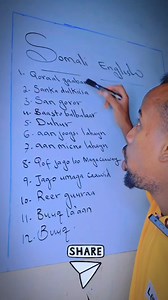 Somali English
1. Qoraal gacmeed
2. Sanka dulkiisa
3. San goror
4. Baasto balbalaar
5. Duhur
6. aan joogi lahayn
7. aan micno lahayn
8. Qof jago loo Magacaaway
9. Jago umaga caawid
10. Reer guuraa
11. Buuq la'aan
12. Buuq
SHARE